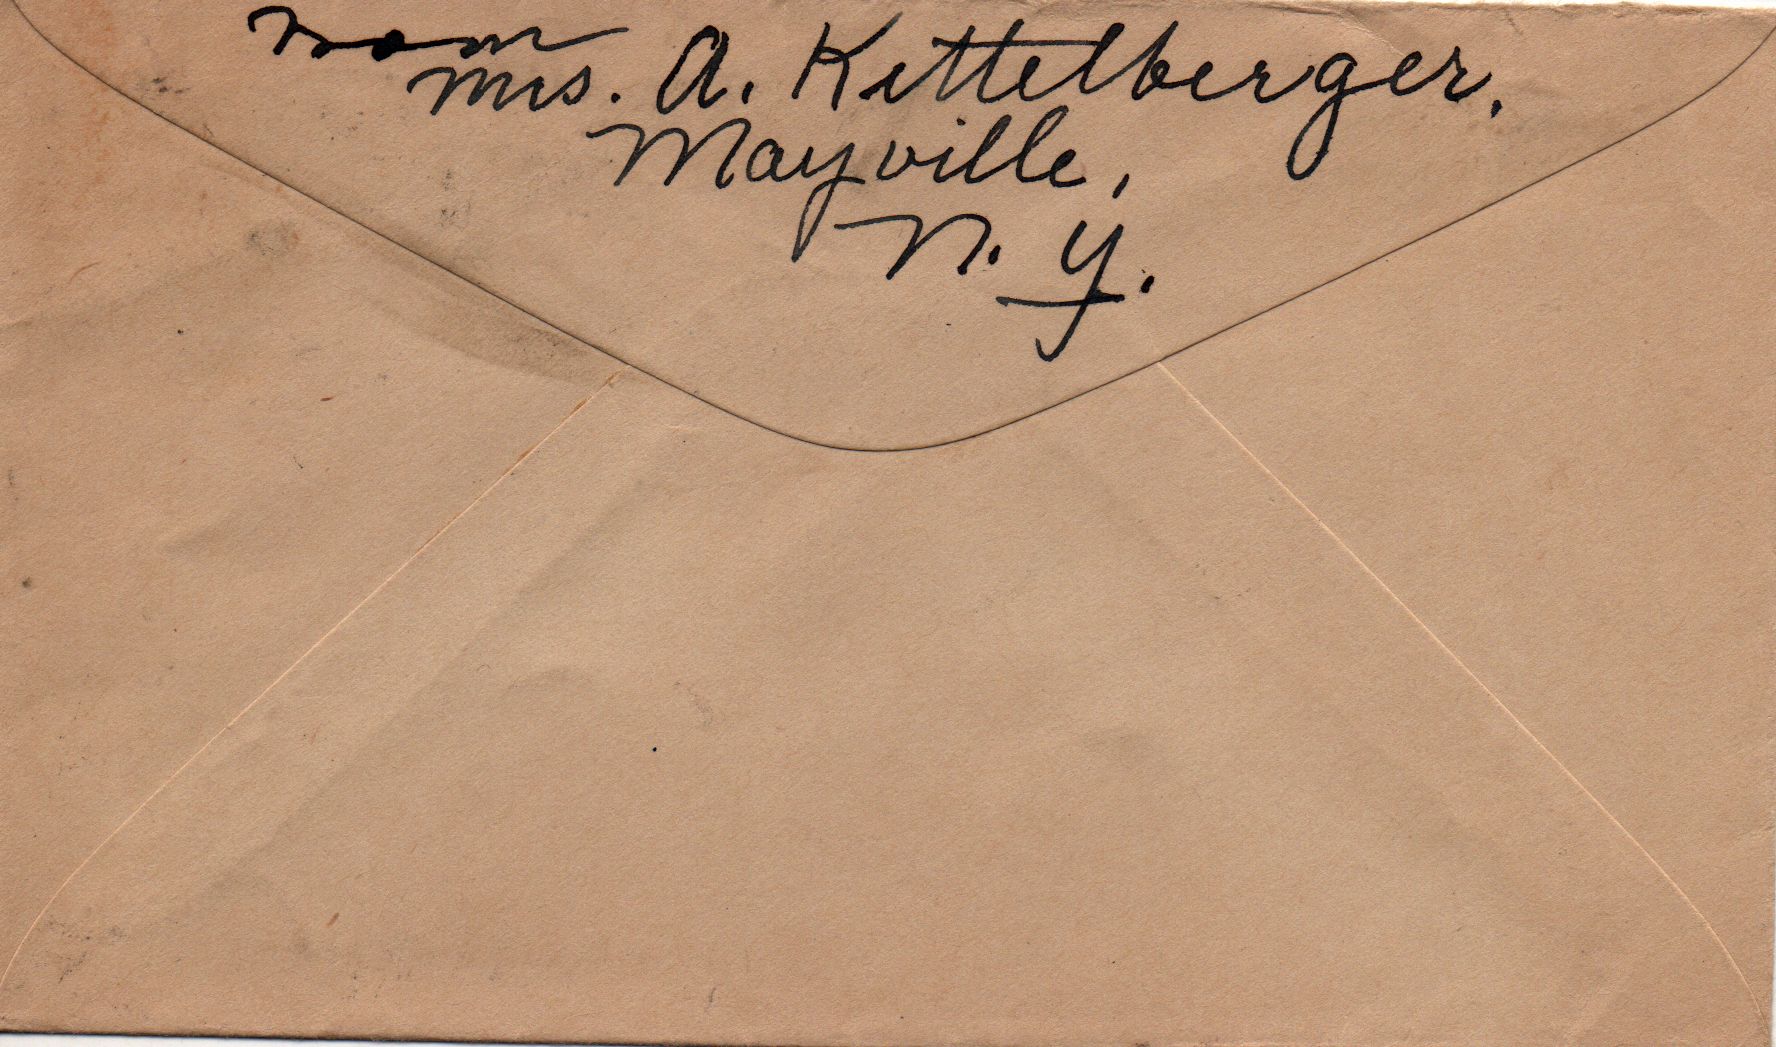 from
Mrs. A. Kettelberger.
Mayville,
N. Y.